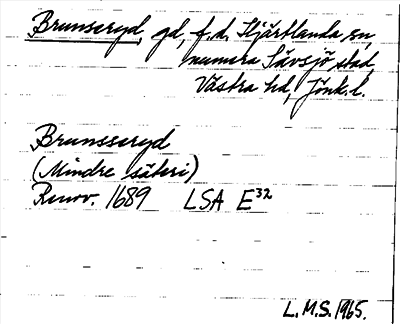 Brunseryd, gd, f.d. Hjärtlanda sn,
numera Sävsjö stad,
Västra hd, Jönk.l.
Brunsseryd
(Mindre säteri)
Renov. 1689 LSA E32
L.M.S. 1965.